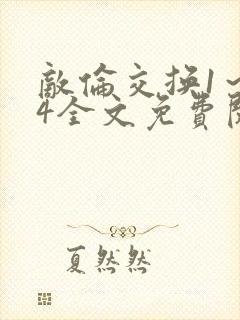 敵倫交换1~
4全文免費閱
夏然然